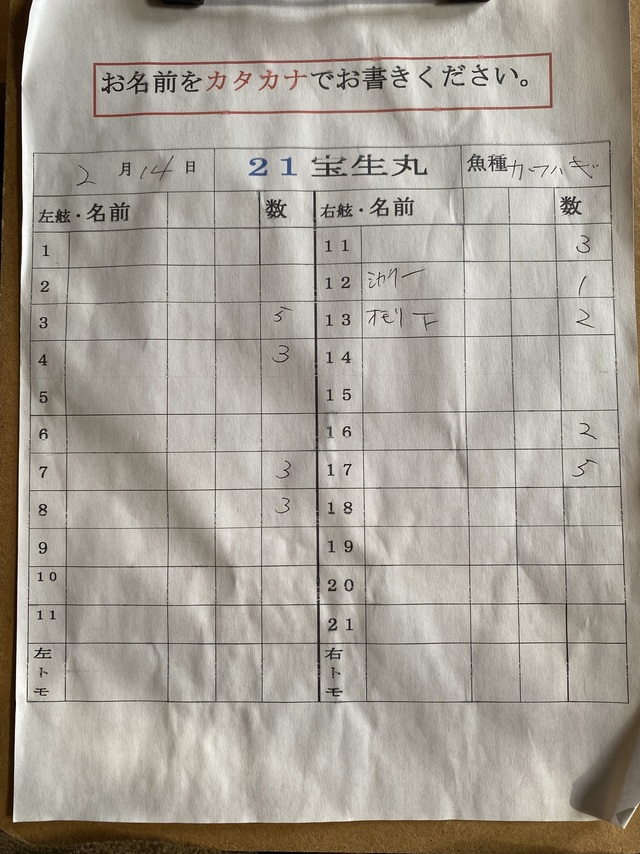 お名前をカタカナでお書きください。
2 月 14 日 21宝生丸 魚種 カワハギ
左舷・名前 数 右舷・名前 数
1 11 3
2 12 1
3 5 13 オモリ下 2
4 3 14
5 15
6 16 2
7 3 17 5
8 3 18
9 19
10 20
11 21
左トモ 右トモ